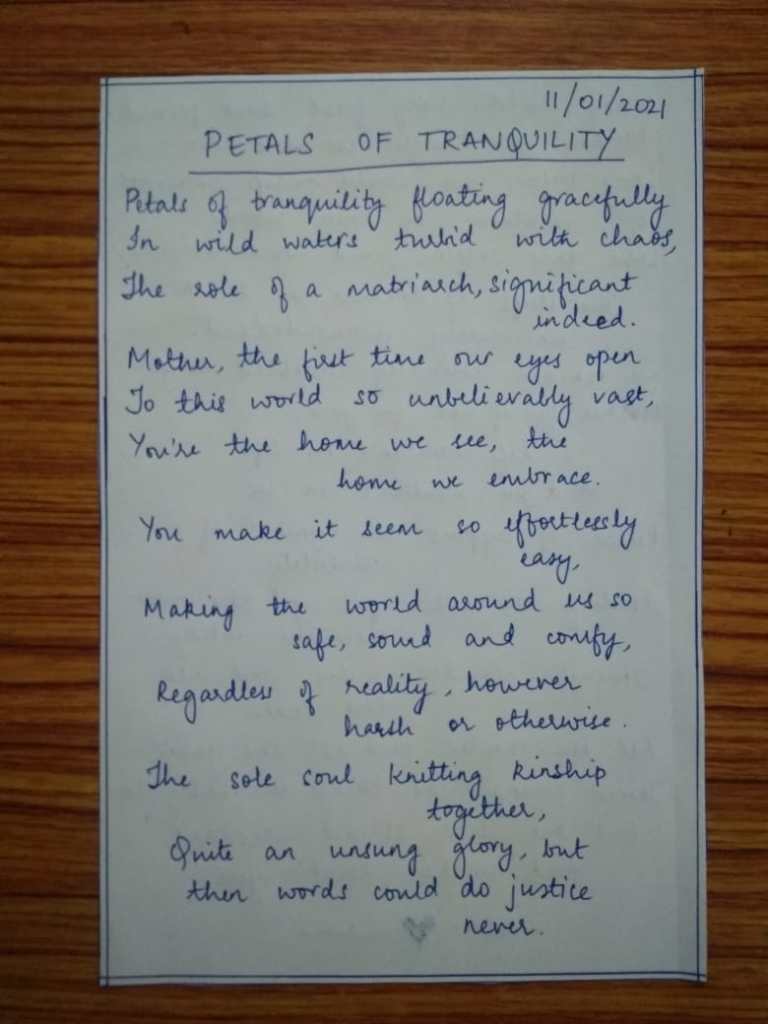 11/01/2021
PETALS OF TRANQUILITY
Petals of tranquility floating gracefully
In wild waters turbid with chaos,
The role of a matriarch, significant
indeed.
Mother, the first time our eyes open
To this world so unbelievably vast,
You're the home we see, the
home we embrace.
You make it seem so effortlessly
easy,
Making the world around us so
safe, sound and comfy,
Regardless of reality, however
harsh or otherwise.
The sole soul knitting kinship
together,
Quite an unsung glory, but
then words could do justice
never.